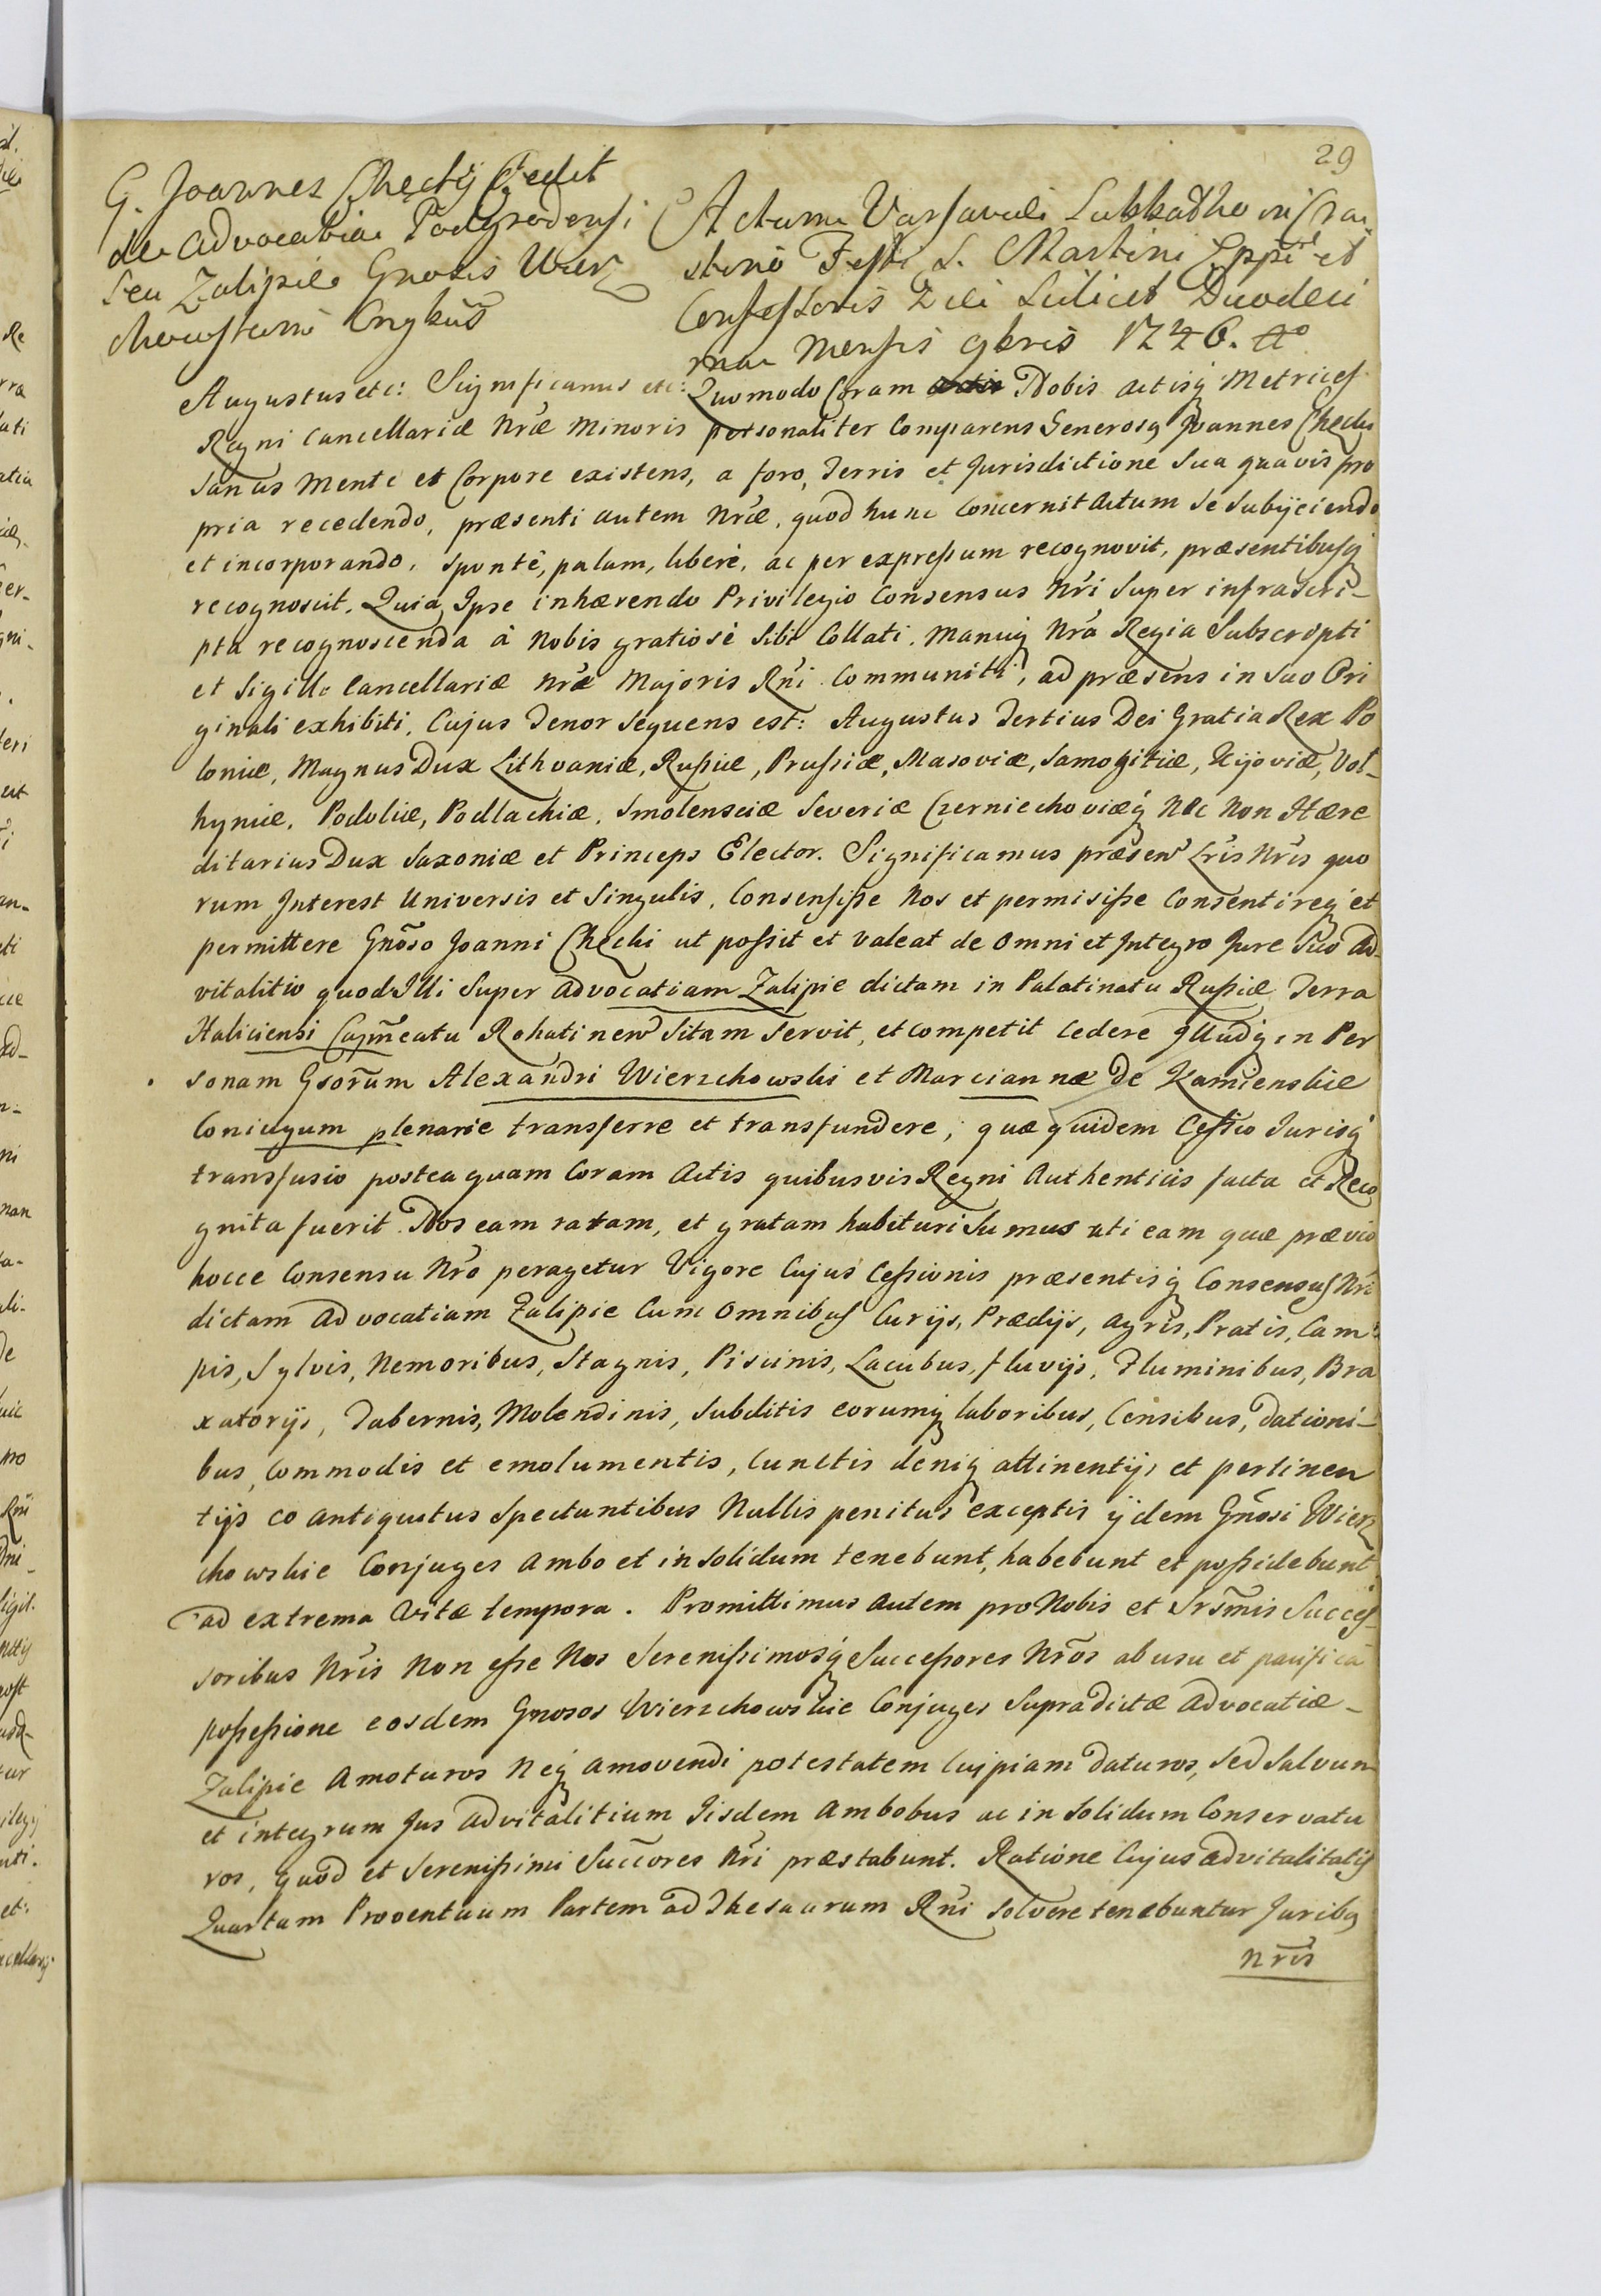 29
G. Joannes Chęcky Cedit
de Advocatia Podgrodensi
seu Zalipie Gnosis Wier
chowskim Cngbus
Actum Varsaviæ Sabbatho in Cra
stino Festi S. Martini Eppi et
Confessoris Diei Scilicet Duodeci
ma Mensis 9bris 1746. Ao
Augustus etc: Significamus etc: Quomodo Coram Nobis actisq Metrices
Regni Cancellariæ Nræ Minoris personaliter Comparens Generosq Joannes Chęcki
sanus Mente et Corpore existens, a foro, Terris et Jurisdictione Sua quavis pro
pria recedendo, præsenti autem Nræ, quod hunc Concernit Actum Se Subijciendo
et incorporando, Sponte, palam, libere, ac per expressum recognovit, præsentibusq
recognoscit. Quia Ipse inhærendo Privilegio Consensus Nri Super infrascri-
pta recognoscenda à Nobis gratiosè Sibi Collati, Manuq Nra Regia Subscripti
et Sigillo Cancellariæ Nræ Majoris Rni Communiti, ad præsens in Suo Ori
ginali exhibiti, Cujus Tenor Sequens est: Augustus Tertius Dei Gratia Rex Po
loniæ, Magnus Dux Lithvaniæ, Russiæ, Prussiæ, Masoviæ, Samogitiæ, Kijoviæ, Vol-
hyniæ, Podoliæ, Podlachiæ, Smolensciæ Severiæ Czerniechoviæq Nec Non Hære
ditarius Dux Saxoniæ et Princeps Elector. Significamus præsen Lris Nris quo
rum Interest Universis et Singulis, Consensisse Nos et permisisse Consentireq et
permittere Gnoso Joanni Chęcki ut possit et valeat de Omni et Integro Jure Suo Ad-
vitalitio quod Illi Super Advocatiam Zalipie dictam in Palatinatu Russiæ Terra
Haliciensi Capneatu Rohatinen Sitam Servit, et competit Cedere Illudq in Per
sonam Gsorum Alexandri Wierzchowski et Marciannæ De Kamienskie
Coniugum plenarie transferre et transfundere, quæ quidem Cessio Jurisq
transfusio posteaquam Coram Actis quibusvis Regni Authenticis facta et Reco
gnita fuerit Nos eam ratam, et gratam habituri Sumus uti eam quæ prævio
hocce Consensu Nro peragetur Vigore Cujus Cessionis præsentisq Consensus Nri
dictam Advocatiam Zalipie Cum Omnibus Curijs, Prædijs, agris, Pratis, Cam
pis, Sylvis, Nemoribus, Stagnis, Piscinis, Lacubus, fluvijs, Fluminibus, Bra
xatorijs, Tabernis, Molendinis, Subditis eorumq laboribus, Censibus, Dationi-
bus, Commodis et emolumentis, Cunctis deniq attinentijs et pertinen
tijs eo antiquitus Spectantibus Nullis penitus exceptis ijdem Gnosi Wierz
chowskie Conjuges ambo et in solidum tenebunt, habebunt et possidebunt
ad extrema Vitæ tempora. Promittimus Autem pro Nobis et Srsmis Succes-
soribus Nris Non esse Nos Serenissimosq Successores Nros ab usu et pacifica
possessione eosdem Gnosos Wierzchowskie Conjuges Supradictæ Advocatiæ-
Zalipie Amoturos Neq Amovendi potestatem Cuipiam Daturos, Sed Salvum
et integrum Jus Advitalitium Iisdem Ambobus ac in Solidum Conservatu
ros, quod et Serenissimi Succores Nri præstabunt. Ratione Cujus advitalitatis
Quartam Proventuum Partem ad Thesaurum Rni Solvere tenebuntur Juribq
Nris